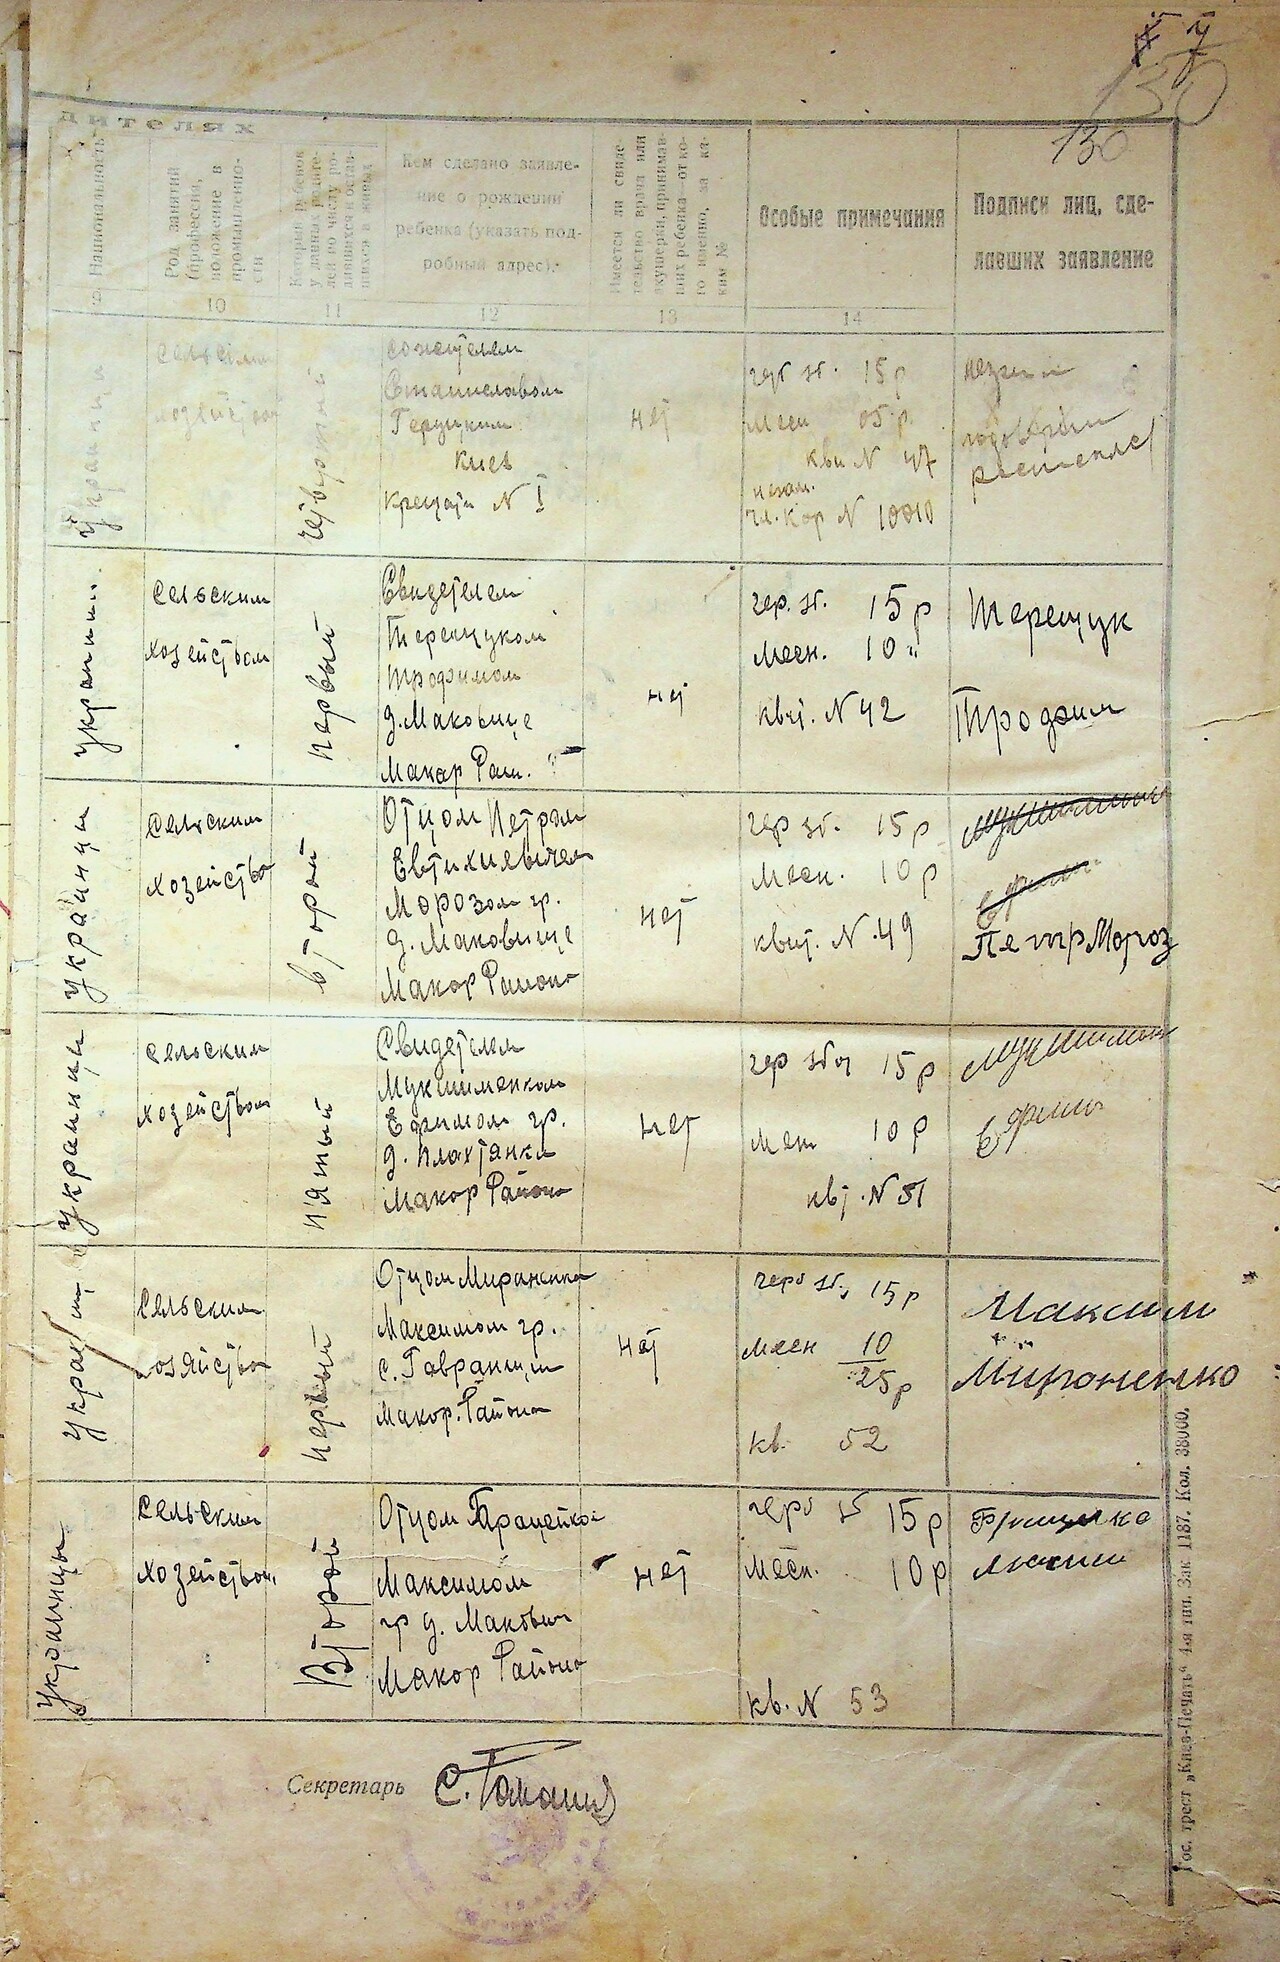 130
130
дителях
9. Национальность
Род занятий
(профессия,
положение в
промышленно-
сти
Который ребенок
у данных родите-
лей по числу ро-
дившихся и остав-
шихся в живых
Кем сделано заявле-
ние о рождении
ребенка (указать под-
робный адрес).
Имеется ли свиде-
тельство врача или
акушерки, принимав-
ших ребенка—от ко-
го именно, за ка-
ким №
Особые примечания
Подписи лиц, сде-
лавших заявление
10
11
12
13
14
украинци
сельским
четвертый
Станиславом
Киев
Крещат N 1
нет
15р
кви N 47
N 10010
украинц.
сельским
хозейством
первый
Свидетелем
Терещуком
Трофимом
д. Маковище
Макар Раи.
нет
гер. зб. 15р
Меен. 10 "
квит. N 42
Терещук
Трофим
украинци
сельским
хозейство
второй
Отцом Петром
Евтихиевичем
Морозом гр.
д. Маковище
Макор Раиона
нет
гер зб. 15р
Меен. 10р
квит. N. 49
Петр Мороз
украинци
сельским
хозейством
пятый
Свидетелем
Мукшименком
Ефимом гр.
д. Плахтянки
Макор Района
нет
гер зб 15р
Мен 10р
квт. N 51
Ефим
украинц
сельским
хозяйство
первый
Отцом Мираненко
Максимом гр.
с. Гавранщин
Макор. Района
нет
герб зб. 15р
Меен 10
25р
кв. 52
Максим
Мироненко
украинцы
сельским
хозейством
Второй
Отцом
Максимом
гр д. Макович
Макор Района
нет
герб зб 15р
Меен. 10р
кв. N 53
Секретарь
Гос. трест „Киев-Печать“ 4-я тип. Зак 1187. Кол. 38000.